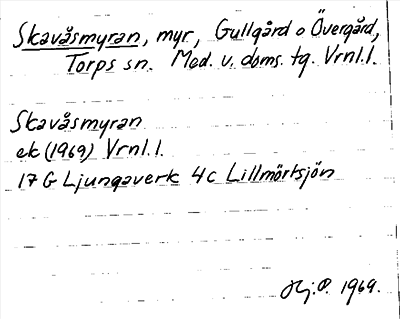 Skavåsmyran, myr, Gullgård o Övergård,
Torps sn. Med. v. doms. tg. Vrnl.l.
Skavåsmyran
ek (1969) Vrnl.l.
17 G Ljungaverk 4c Lillmörtsjön
Hj.P. 1969.